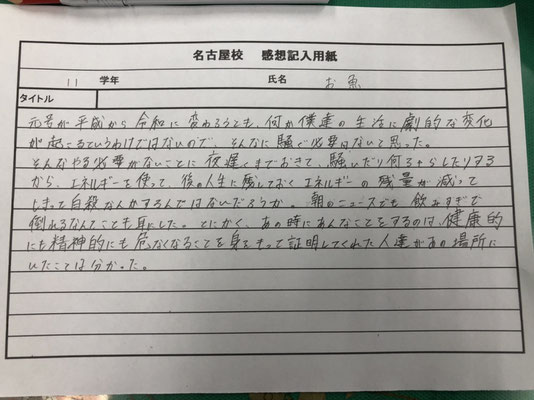 名古屋校 感想記入用紙
11 学年 氏名 お魚
タイトル
元号が平成から令和に変わろうとも、何か僕達の生活に劇的な変化
が起こるというわけではないので、そんなに騒ぐ必要はないと思った。
そんなやる必要がないことに夜遅くまでおきて、騒いだり何やらしたりする
から、エネルギーを使って、後の人生に残しておくエネルギーの残量が減って
しまって自殺なんかするんではないだろうか。朝のニュースでも飲みすぎで
倒れるなんてことも耳にした。とにかく、あの時にあんなことをするのは、健康的
にも精神的にも危なくなることを身をもって証明してくれた人達があの場所に
いたことは分かった。